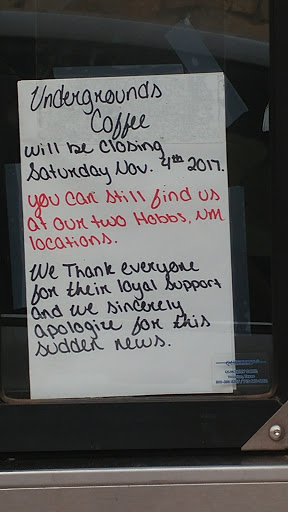 Undergrounds
Coffee
will be closing
Saturday Nov. 4th 2017.
you can still find us
at our two Hobbs, NM
locations.
We Thank everyone
for their loyal support
and we sincerely
apologize for this
sudden news.